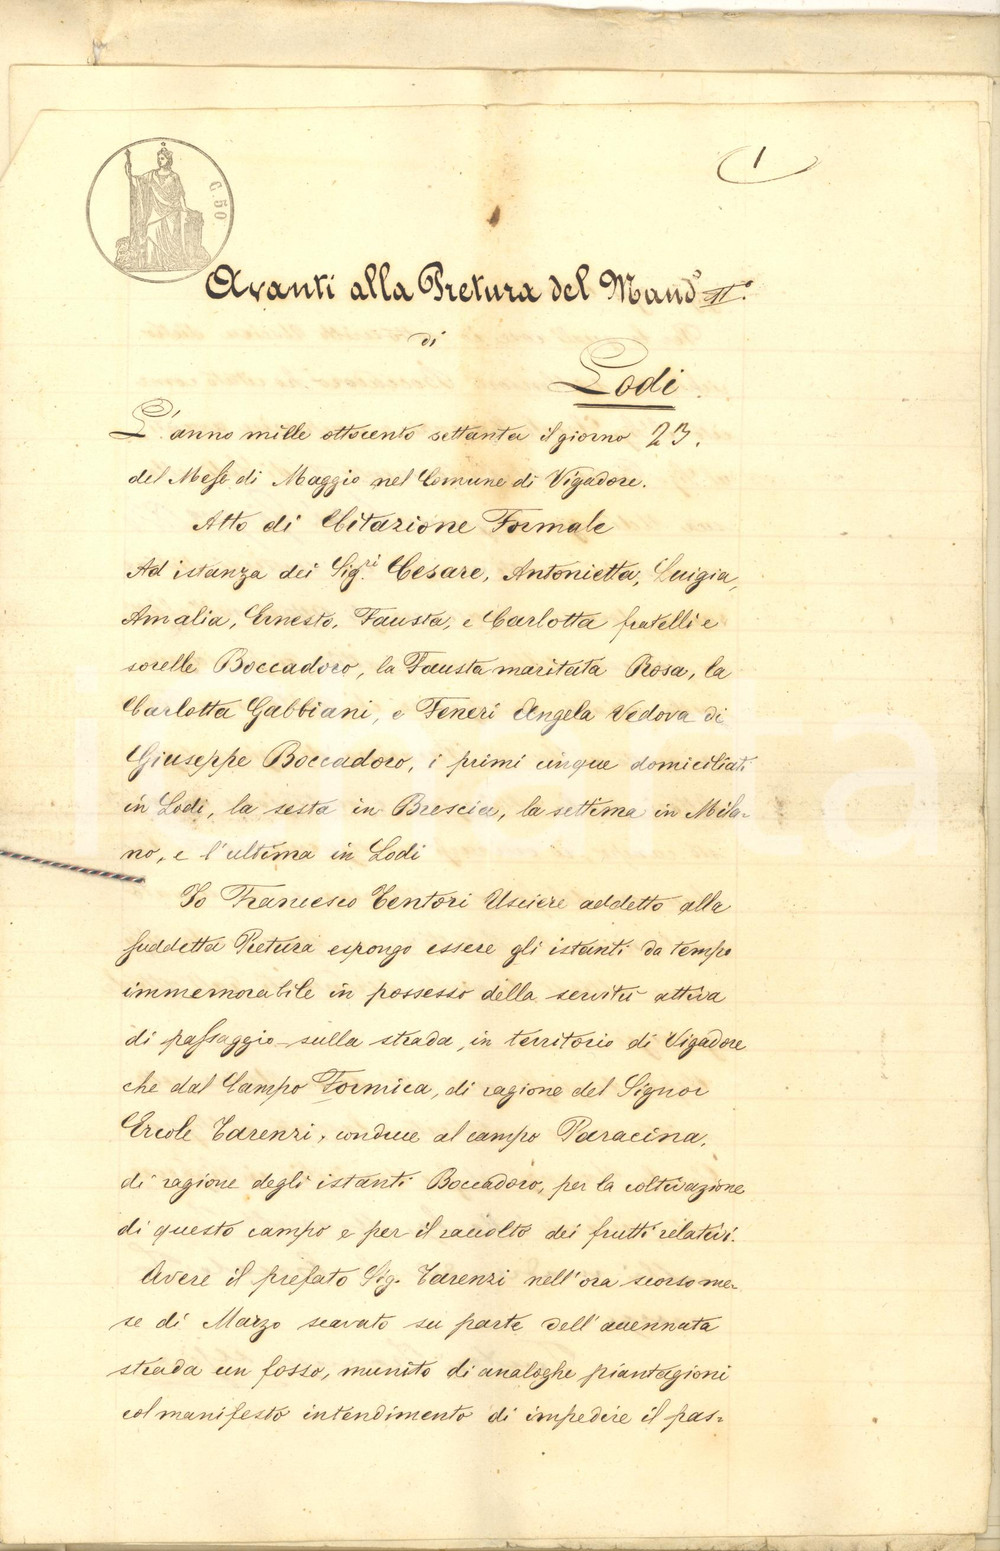 1
C. 50
Avanti alla Pretura del Mand.o II.o
di
Lodi.
L'anno mille ottocento settanta il giorno 23.
del Mese di Maggio nel Comune di Vigadore.
Atto di Citazione Formale
Ad istanza dei Sig.ri Cesare, Antonietta, Luigia,
Amalia, Ernesto, Fausta, e Carlotta fratelli e
sorelle Boccadoro, la Fausta maritata Rosa, la
Carlotta Gabbiani, e Feneri Angela Vedova di
Giuseppe Boccadoro, i primi cinque domiciliati
in Lodi, la sesta in Brescia, la settima in Mila-
no, e l'ultima in Lodi
Io Francesco Tentori Usciere addetto alla
suddetta Pretura espongo essere gli istanti da tempo
immemorabile in possesso della servitù attiva
di passaggio sulla strada, in territorio di Vigadore
che dal Campo Formica, di ragione del Signor
Ercole Tarenzi, conduce al campo Paracina,
di ragione degli istanti Boccadoro, per la coltivazione
di questo campo e per il raccolto dei frutti relativi.
Avere il prefato Sig. Tarenzi nell'ora scorso me-
se di Marzo scavato su parte dell'accennata
strada un fosso, munito di analoghe piantagioni
col manifesto intendimento di impedire il pas=